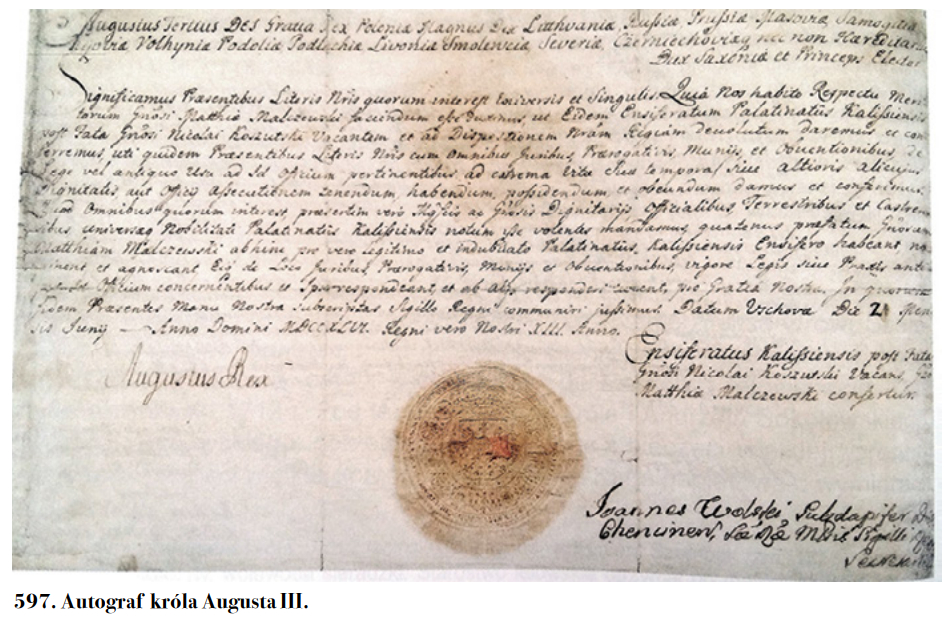 Augustus Tertius Dei Gratia Rex Poloniæ Magnus Dux Litthvaniæ, Russiæ, Prussiæ, Masoviæ, Samogitiæ
Kijoviæ, Volhyniæ, Podoliæ, Podlachiæ, Livoniæ, Smolensciæ, Severiæ, Czerniechoviæq, nec non Hæreditari
Dux Saxoniæ et Princeps Elector
Significamus Præsentibus Literis Nris quorum interest Universis et Singulis. Quia Nos habito Respectu Meri
torum Gnosi Matthiæ Malczewski faciendum esse duximus, ut Eidem Ensiferatum Palatinatus Kalissiensis
post Fata Gnosi Nicolai Koszutski Vacantem et ad Dispositionem Nram Regiam devolutum daremus et con
ferremus, uti quidem Præsentibus Literis Nris cum Omnibus Juribus, Prærogativis, Munijs, et Obventionibus de
Lege vel antiquo Usu ad Id Officium pertinentibus, ad extrema Vitæ Ejus tempora, sive altioris alicujus
Dignitatis, aut Officij assecutionem tenendum, habendum, possidendum et obeundum damus et conferimus.
Quod Omnibus quorum interest, præsertim vero Mgficis ac Gnosis Dignitarijs Officialibus, Terrestribus et Castren
sibus universæq Nobilitati Palatinatus Kalissiensis notum esse volentes, mandamus, quatenus præfatum Gnosum
Matthiam Malczewski abhinc pro vero legitimo et indubitato Palatinatus Kalissiensis Ensifero habeant no
minent et agnoscant Eiq de Loco Juribus, Prærogativis, Munijs et Obventionibus, vigore Legis sive Praxis anti
Id Officium concernentibus et respondeant, et ab Alijs responderi curent, pro Gratia Nostra. In quorum
Fidem Præsentes Manu Nostra Subscriptas Sigillo Regni communiri jussimus. Datum Vschovæ Die 21 Men
sis Junij — Anno Domini MDCCXLVI. Regni vero Nostri XIII. Anno.
Augustus Rex
Ensiferatus Kalissiensis post Fata
Gnosi Nicolai Koszutski Vacans, Gno
Matthiæ Malczewski confertur.
Joannes Wolski Subdapifer
Chencinen, Sæ Ræ Mttis Sigilli
597. Autograf króla Augusta III.